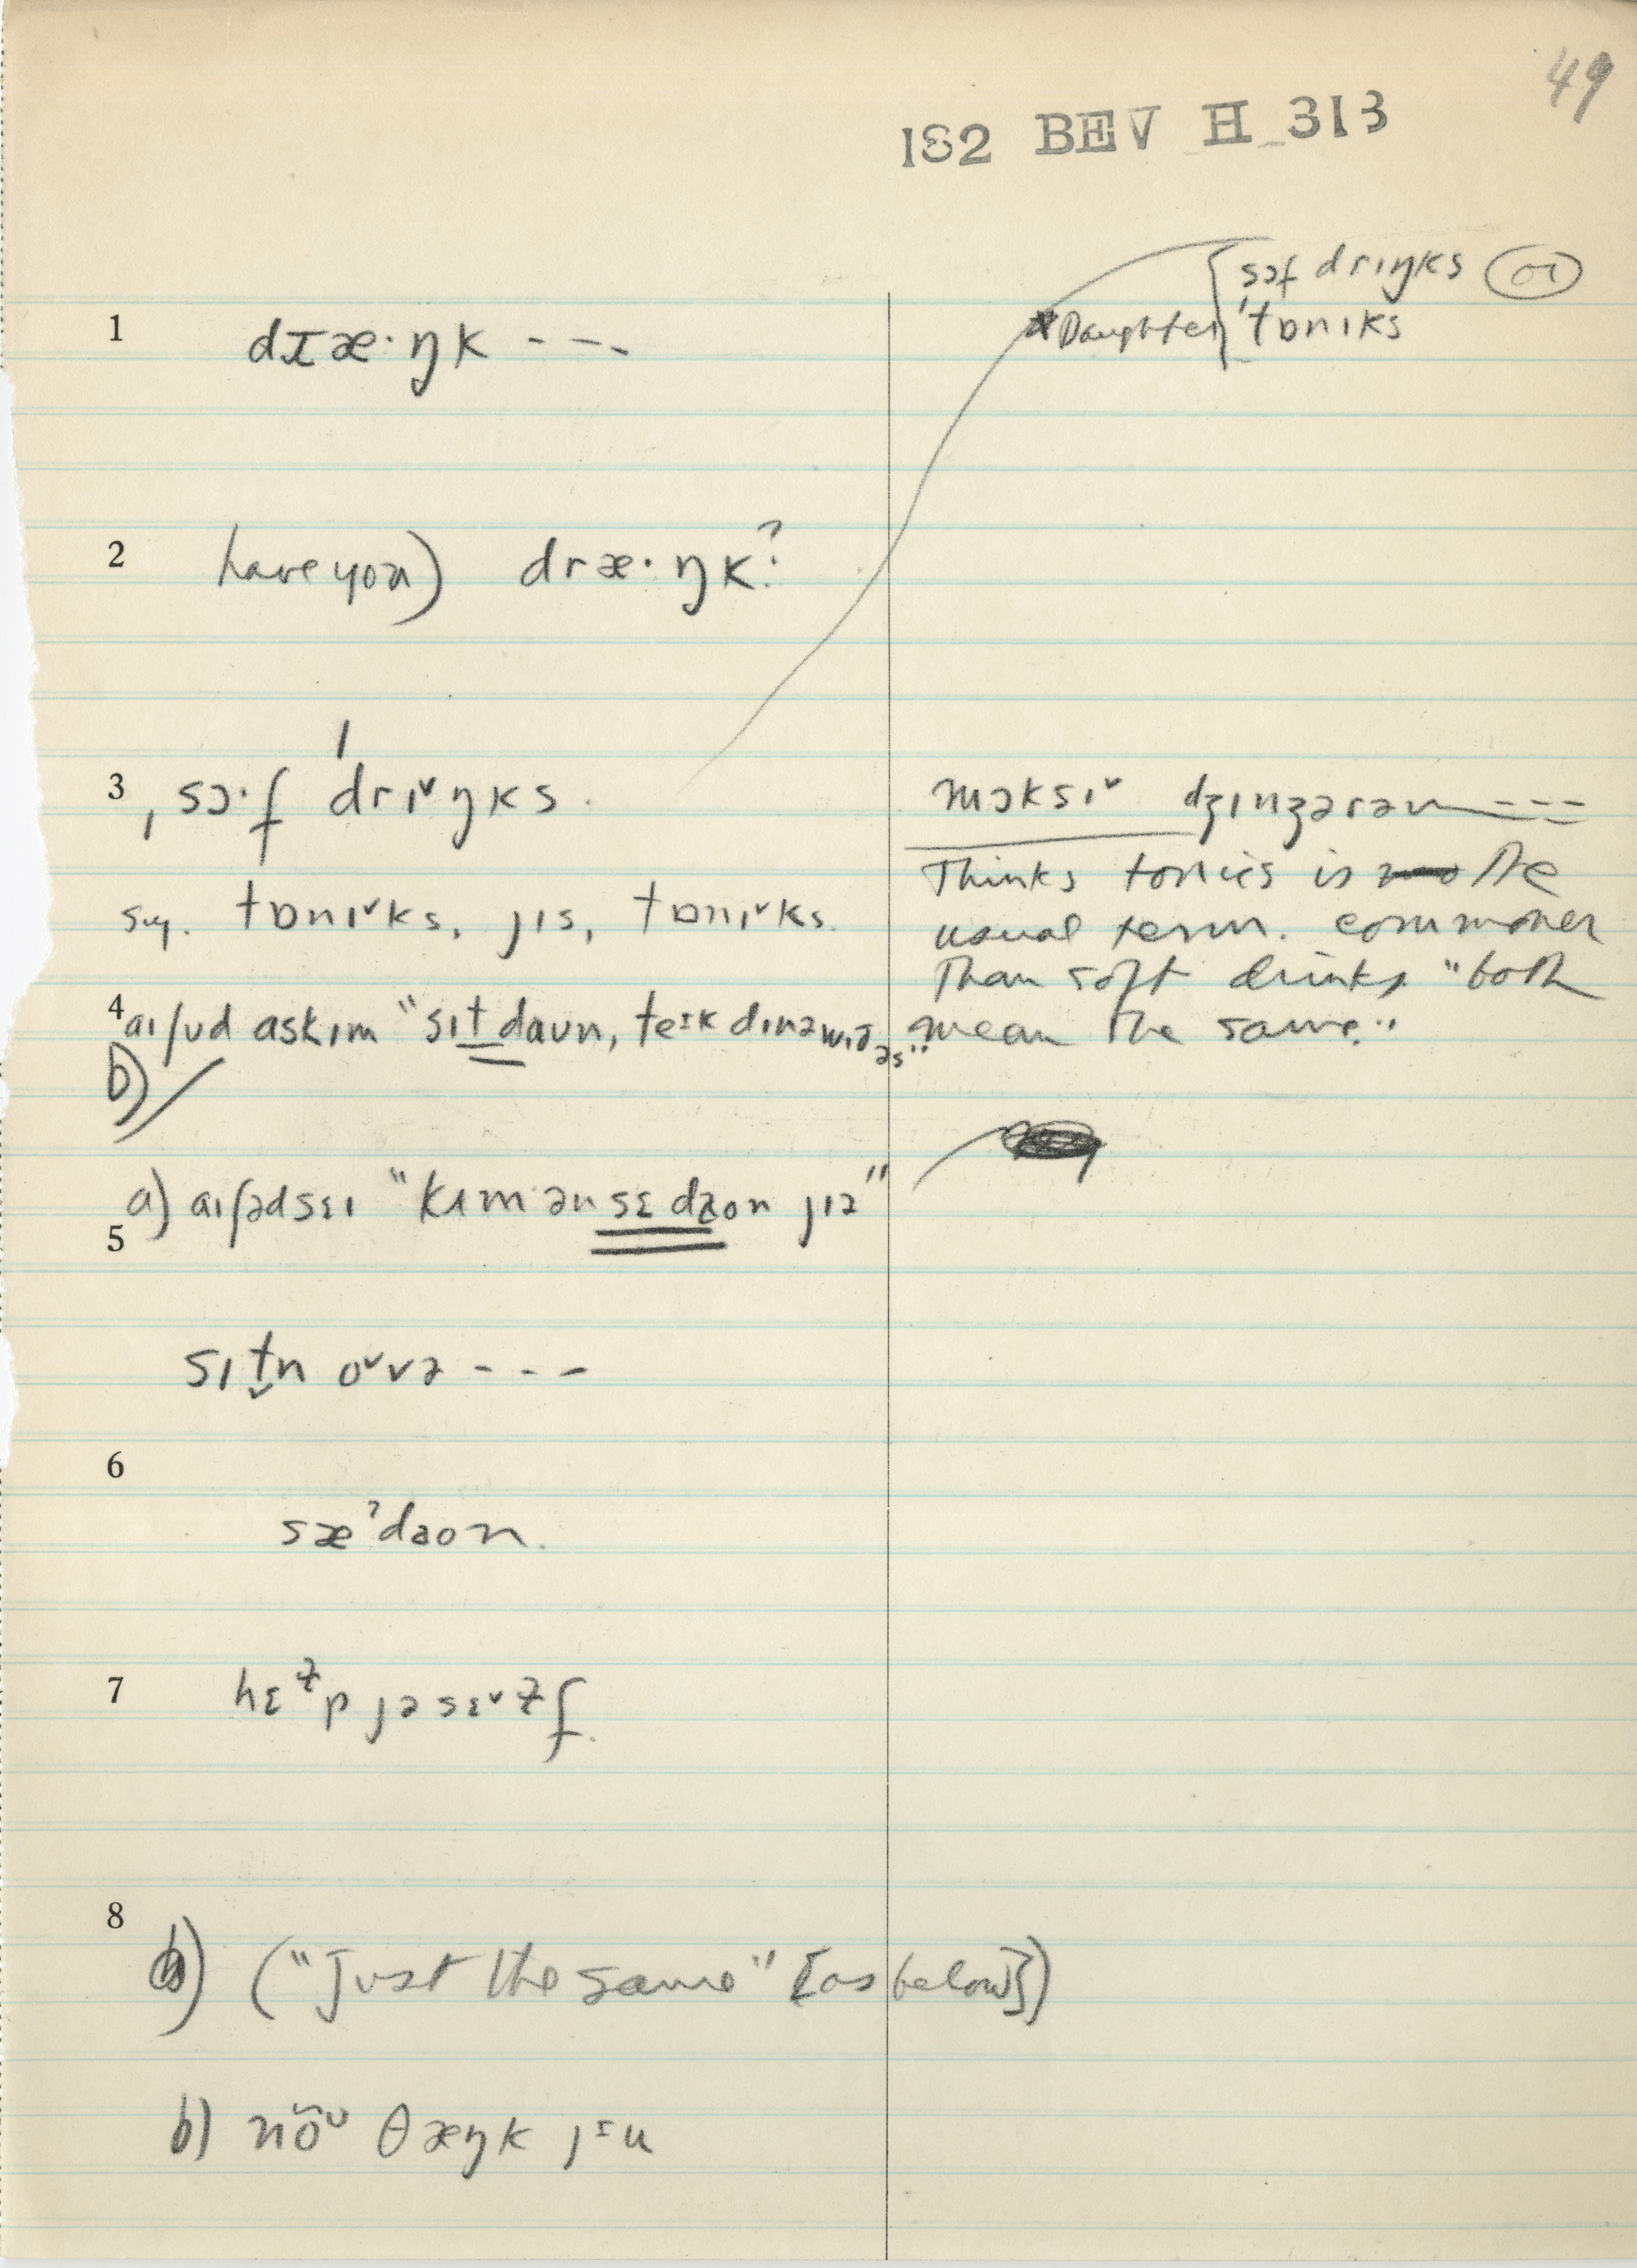 49
182 BEV H_313
{sɔf drɪŋks or
Daughter 'tɒnɪks
1 dɪæ·ŋk ---
2 have you) dræ·ŋk?
3 ˌsɔ·f 'drɪ˅ŋks.
mɔksɪ˅ ---
sug. tɒnɪ˅ks, jɪs, tɒnɪ˅ks.
Thinks tonics is the
usual term. commoner
than soft drinks "both
mean the same."
4 aɪʃʊd askɪm "sɪt daʊn, teɪk dɪnə wɪð əs"
b)
a) aɪʃədsɛɪ "kɪm ən sɛ daon jɪə"
5 sɪtn o˅və ---
6 sæˀdaon.
7 hɛɫp jəsɛ˅ɫf.
8 a) ("Just the same" [as below])
b) nõʊ θæŋk jɪu